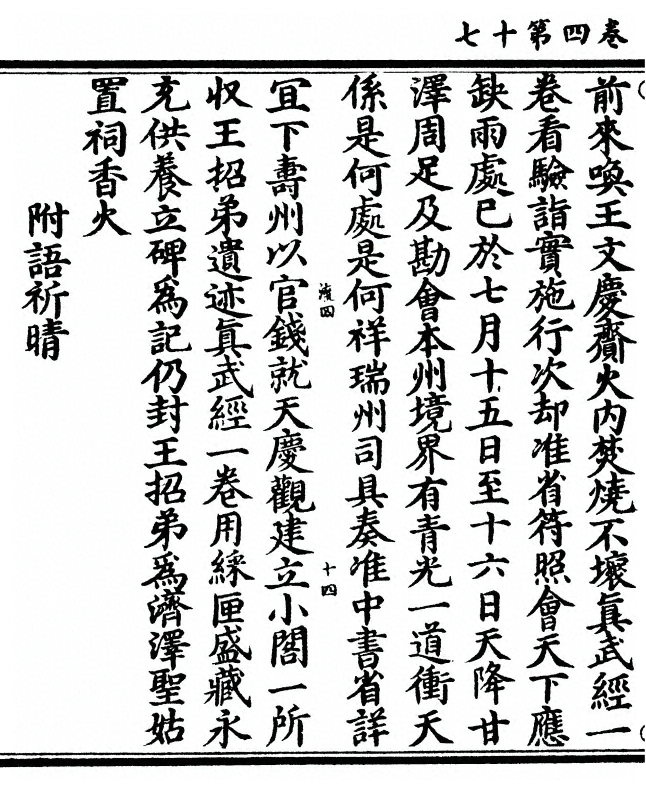 卷四第十七
前來喚王文慶齎火内焚燒不壞真武經一
卷看驗詣實施行次却准省符照會天下應
缺雨處已於七月十五日至十六日天降甘
澤周足及勘會本州境界有青光一道衝天
係是何處是何祥瑞州司具奏准中書省詳
濟四
十四
宜下壽州以官錢就天慶觀建立小閣一所
収王招弟遺迹真武經一卷用綵匣盛藏永
充供養立碑爲記仍封王招弟爲濟澤聖姑
置祠香火
附語祈晴